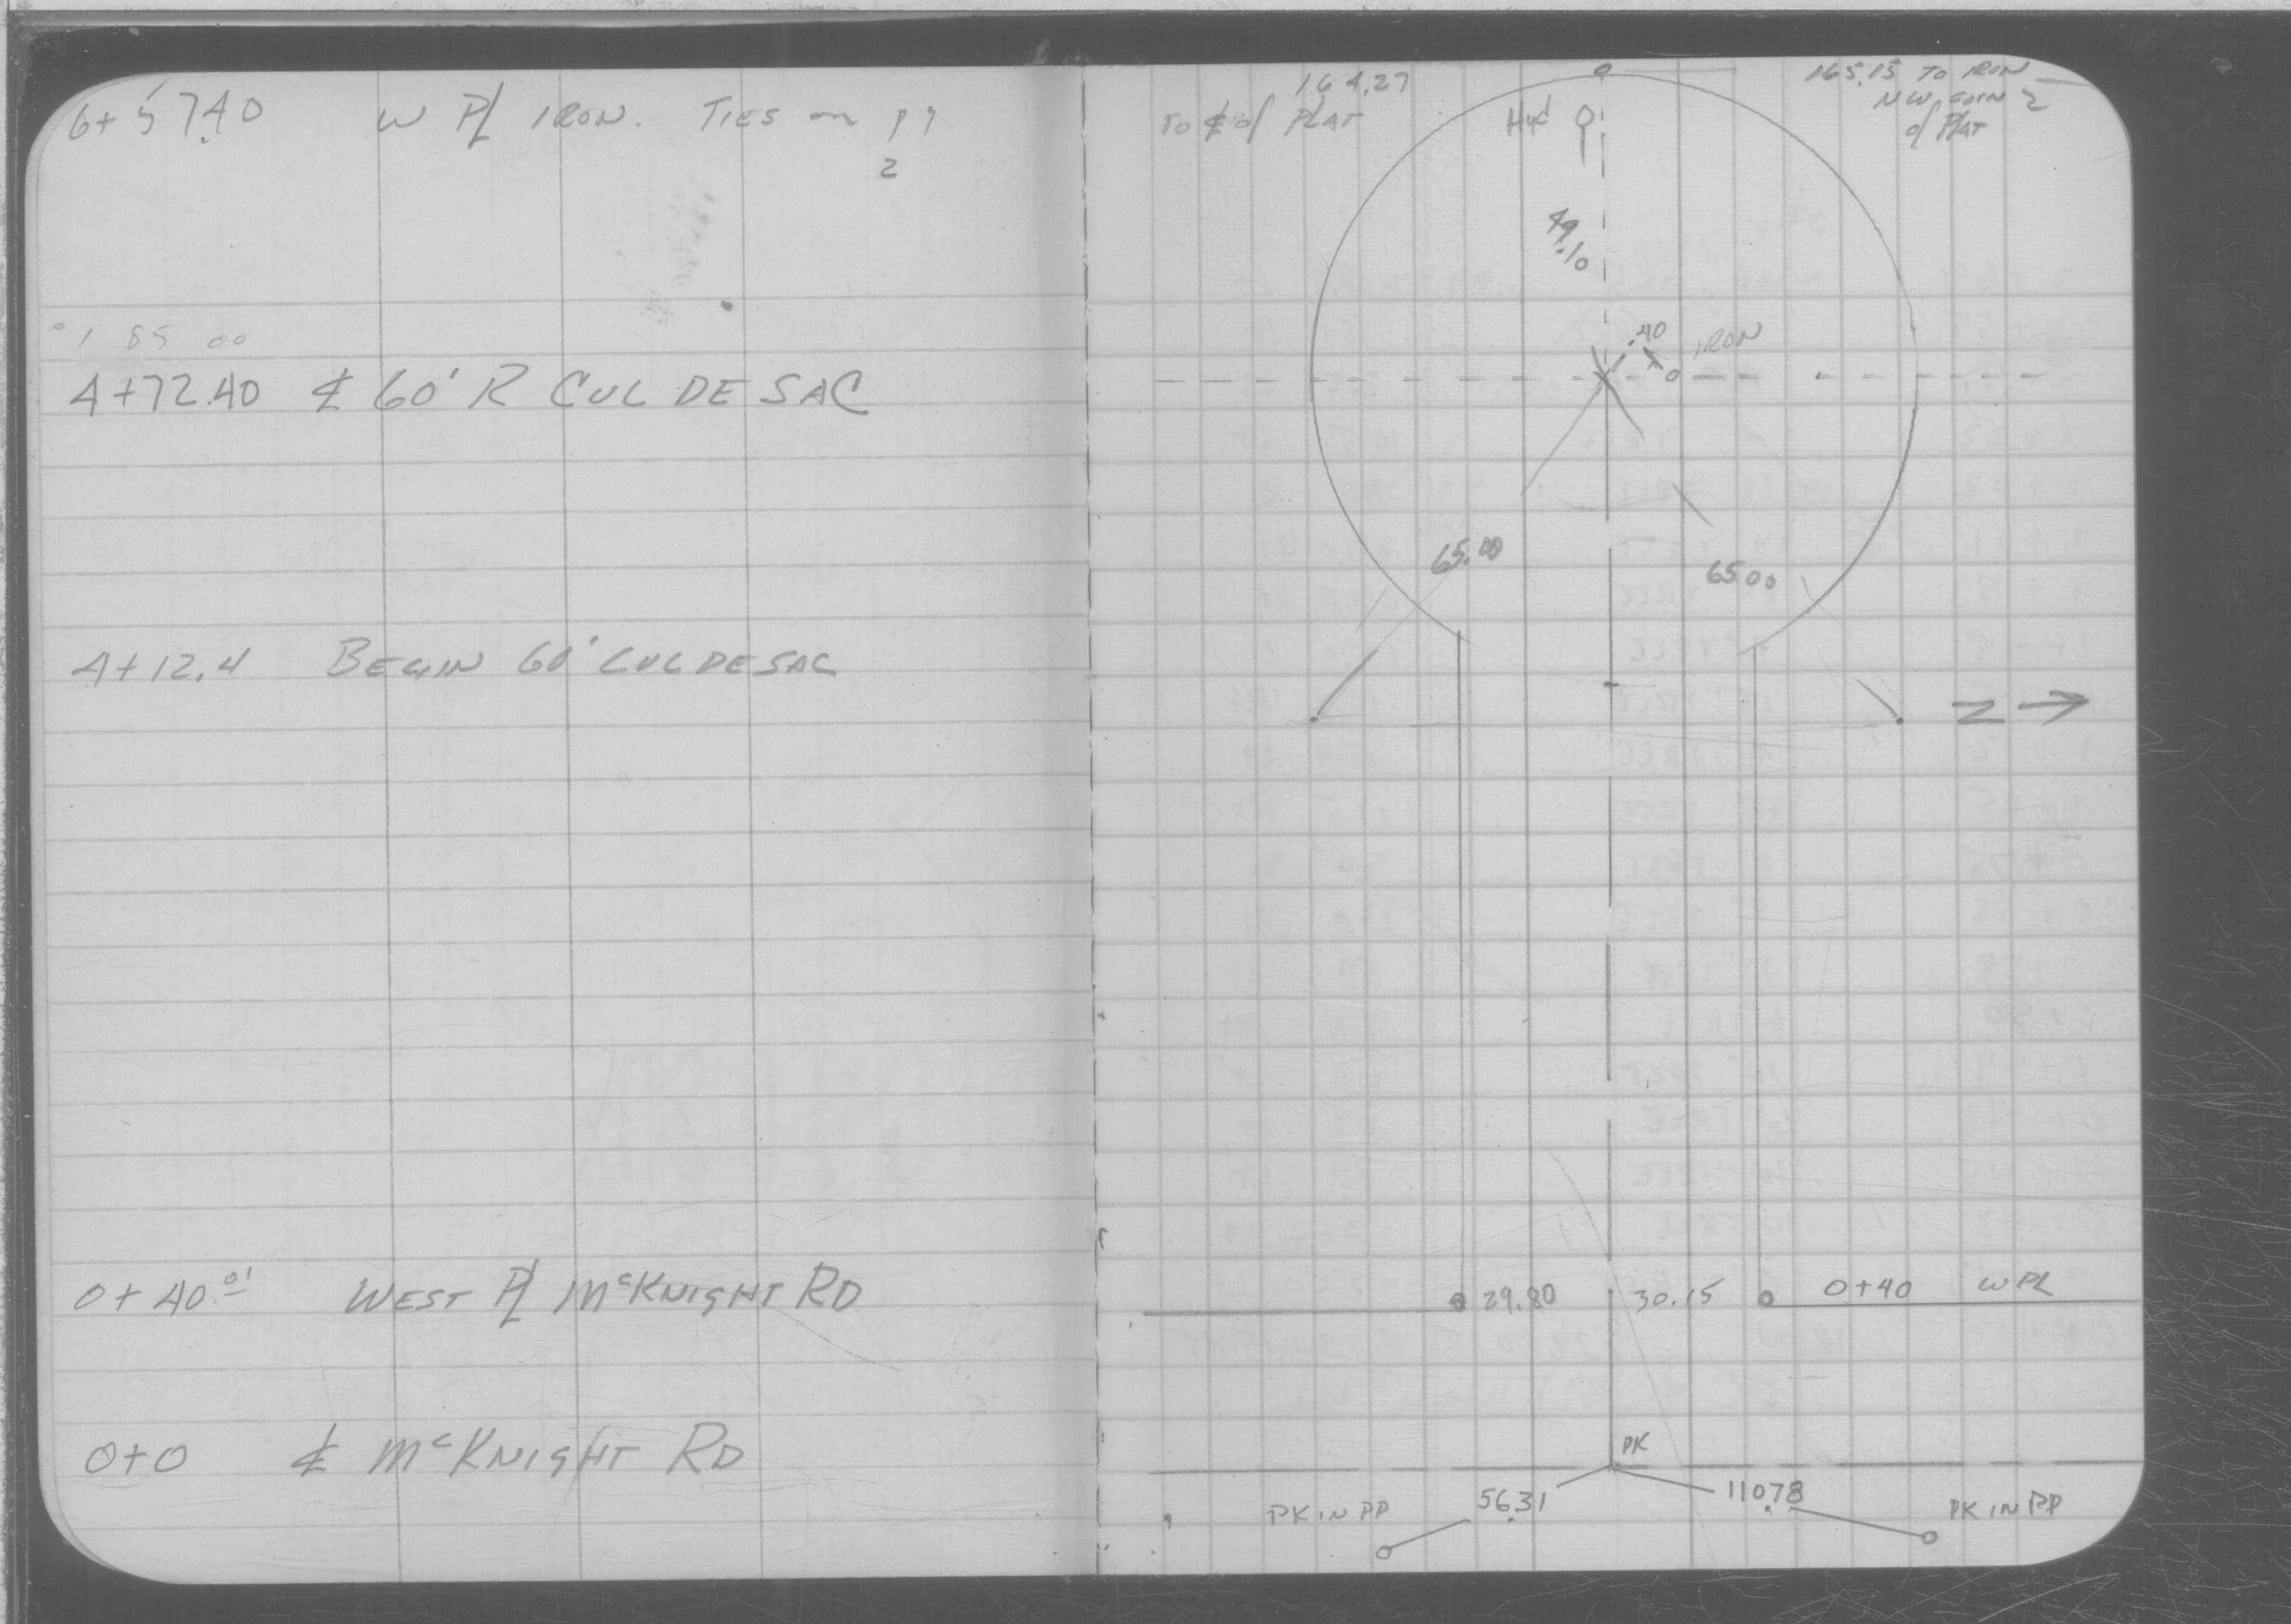 6+57.40 W PL IRON. TIES on pg
2
1 85 00
4+72.40 ℄ 60' R CUL DE SAC
4+12.4 BEGIN 60' CUL DE SAC
0+40.01 WEST PL McKNIGHT RD
0+0 ℄ McKNIGHT RD
164.27
TO ℄ of PLAT
Hyd
165.15 TO IRON
NW CORN 2
of PLAT
49.10
.40 IRON
65.00
65.00
Z →
29.80 30.15 0+40 W PL
PK
PK IN PP 56.31 110.78 PK IN PP